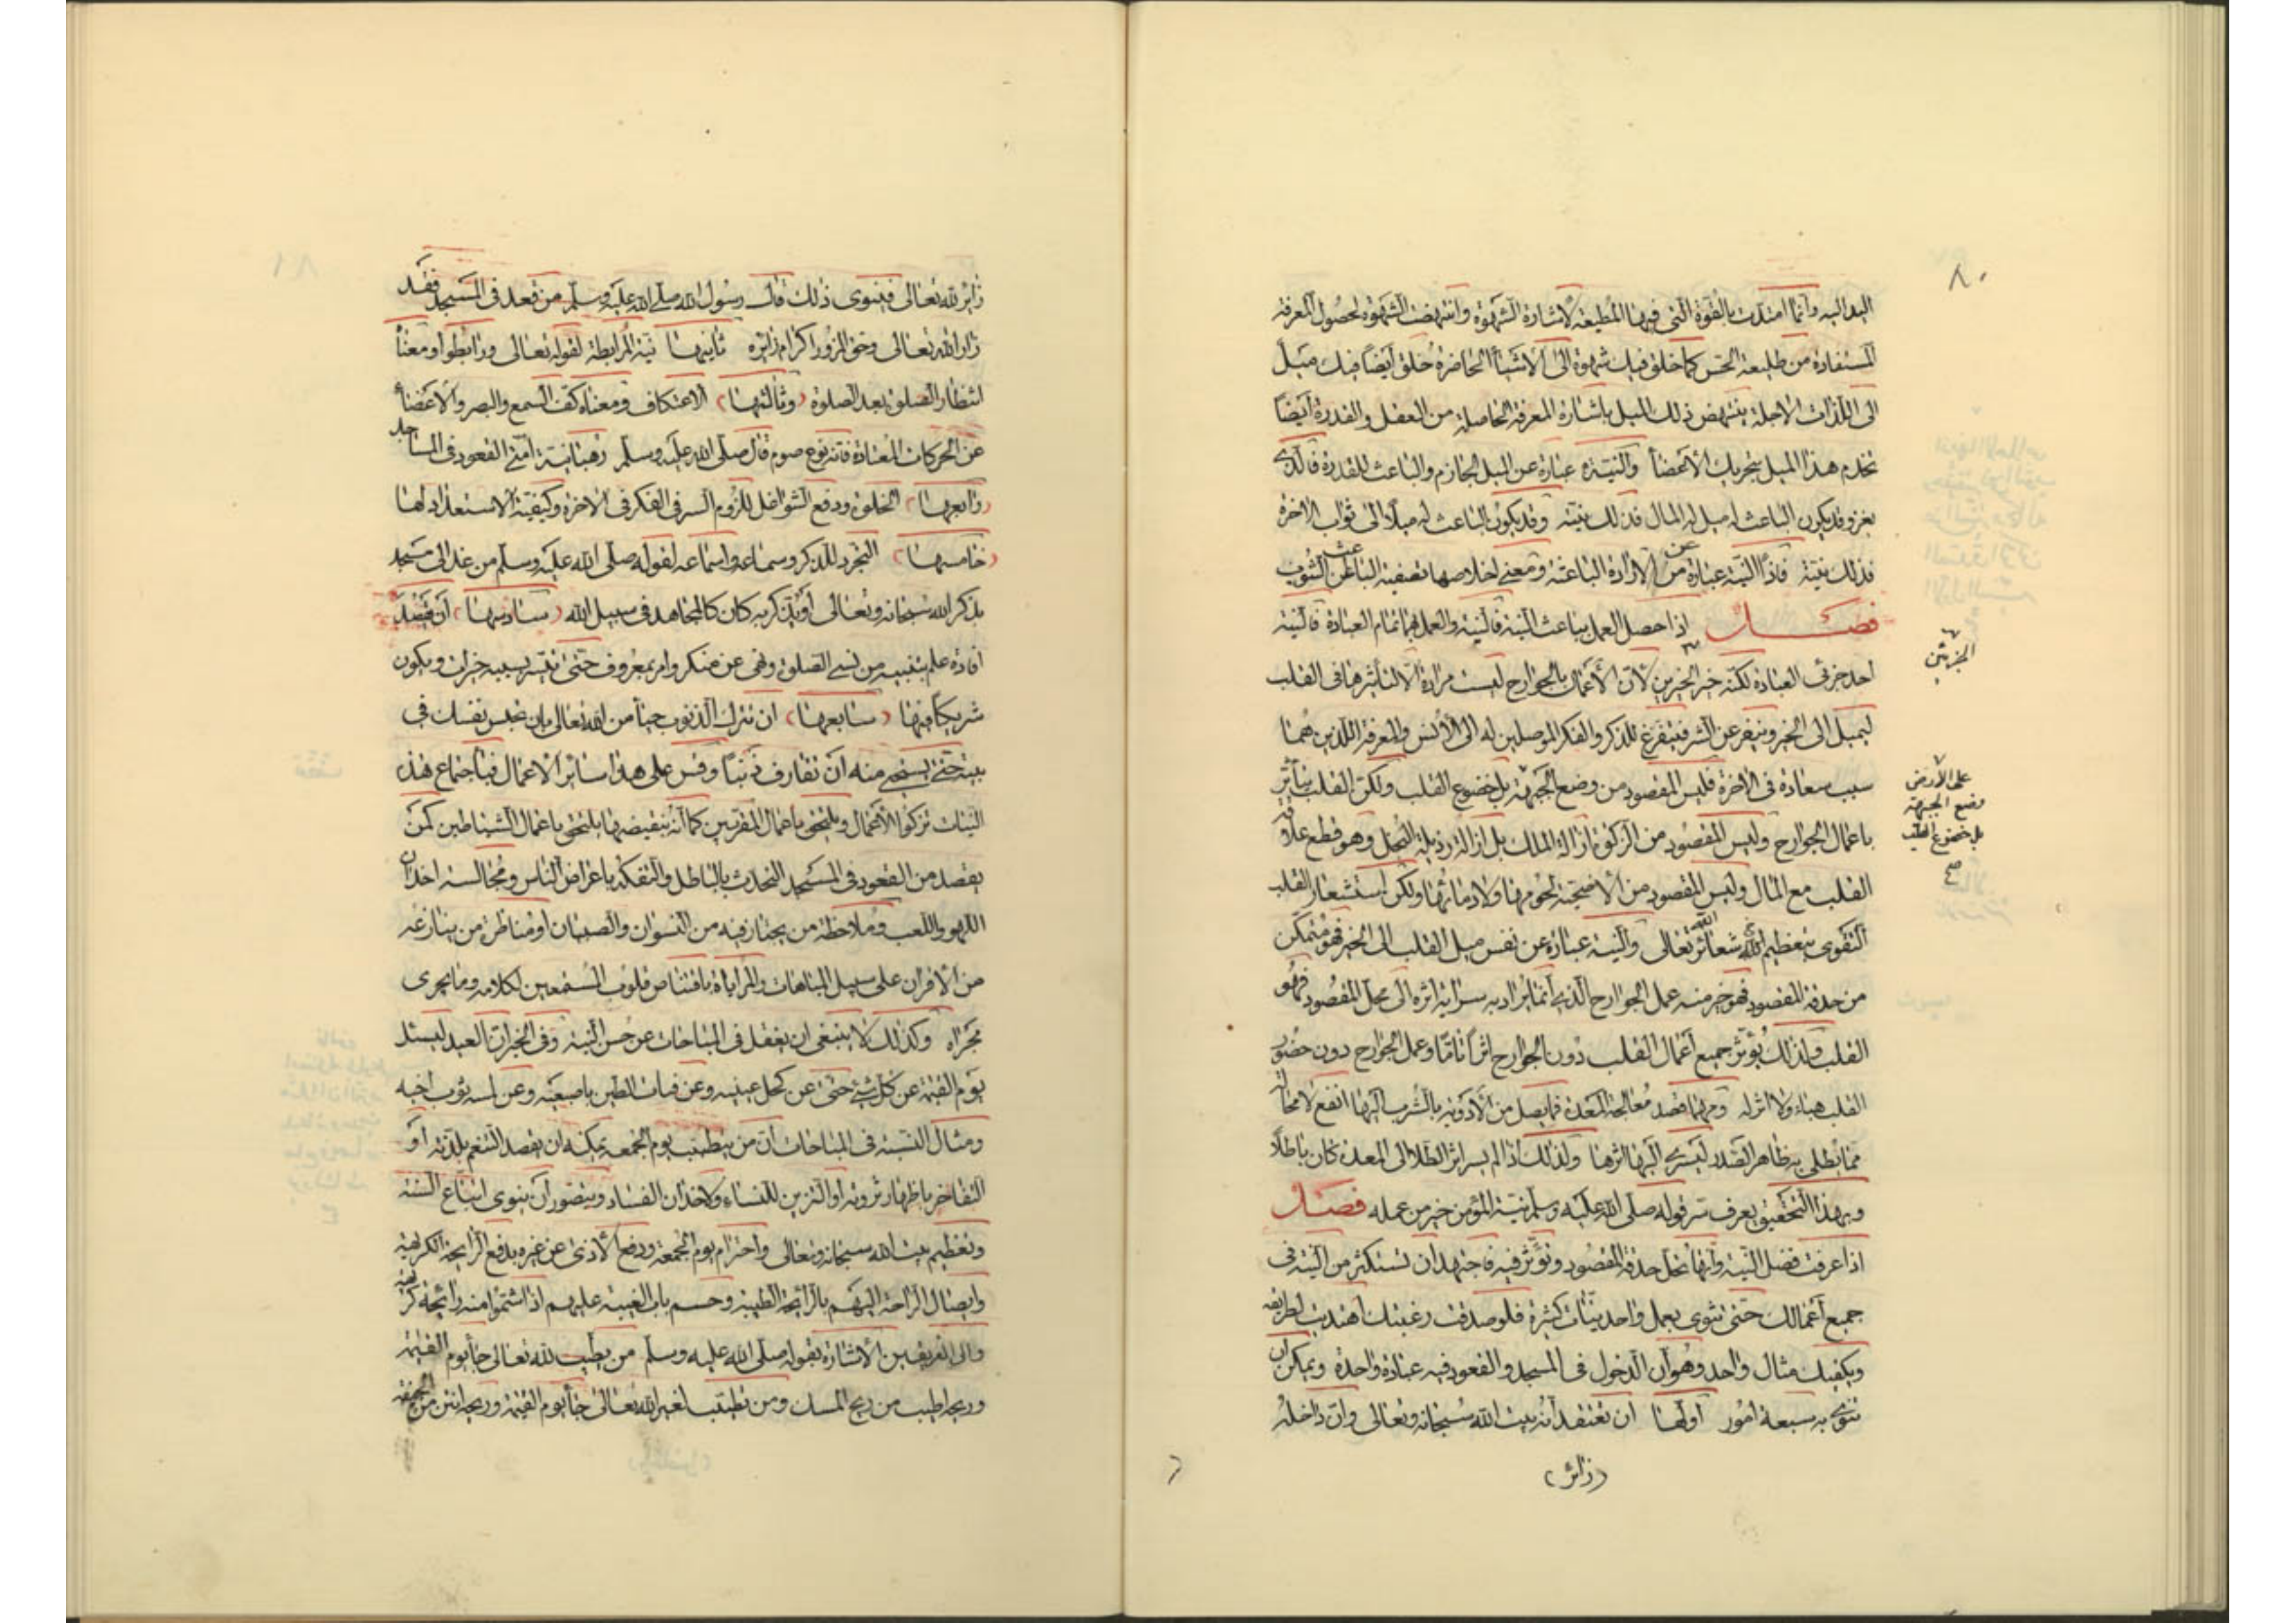 ٨٠
اليد اليه وانما امتدت بالقوة التى فيها المطيعة لاشارة الشهوة وانتهضت الشهوة لحصول المعرفة
المستفادة من طليعة الحس كما خلق فيك شهوة الى الاشياء الحاضرة خلق ايضا فيك ميل
الى اللذات الاجلة ينتهض ذلك الميل باشارة المعرفة الحاصلة من العقل والقدرة ايضا
تخدم هذا الميل بتحريك الاعضأ والنية عبارة عن الميل الجازم والباعث للقدرة فالذى
يغزو قد يكون الباعث له ميل له المال فذلك نيته وقد يكون الباعث له ميلا الى ثواب الاخرة
فذلك نيته فاذا النية عبارة من عن الارادة الباعثة ومعنى اخلاصها تصفية الباعث عن الشوب
فصل اذا حصل العمل بباعث النية فالنية والعمل بهما تمام العبادة فالنية
احد جزئى العبادة لكنه خير الجزئين لان الاعمال بالجوارح ليست مرادة الا لتأثيرها فى القلب
ليميل الى الخير وينفر عن الشر فيتفرغ للذكر والفكر الموصلين له الى الانس والمعرفة اللذين هما
سبب سعادة فى الاخرة فليس المقصود من وضع الجبهة بل خضوع القلب ولكن القلب يتأثر
باعمال الجوارح وليس المقصود من الزكوة ازالة الملك بل ازالة رذيلة البخل وهو قطع علاقة
القلب مع المال وليس المقصود من الاضحية لحومها ولا دمائها ولكن استشعار القلب
التقوى بتعظيم الله شعائر الله تعالى والنية عبارة عن نفس ميل القلب الى الخير فهو متمكن
من حدقة المقصود فهو خير منه عمل الجوارح الذى انما يراد به سراية اثره الى محل المقصود فهو
القلب ولذلك يؤثر جميع اعمال القلب دون الجوارح اثرا تاما وعمل الجوارح دون حضور
القلب هباء ولا اثر له ومهما قصد معالجة المعدة فما يصل من الادوية بالشرب اليها انفع لا محالة
مما يطلى به ظاهر الصدر ليسرى اليها اثرها ولذلك اذا لم يسر اثر الطلا الى المعدة كان باطلا
وبهذا التحقيق يعرف سر قوله صلى الله عليه وسلم نية المؤمن خير من عمله فصل
اذا عرفت فضل النية وانها تحل حدقة المقصود وتؤثر فيه فاجتهد ان تستكثر من النية فى
جميع اعمالك حتى تنوى بعمل واحد نيات كثيرة فلو صدقت رغبتك اهتديت لطريقه
ويكفيك مثال واحد وهو ان الدخول فى المسجد والقعود فيه عبادة واحدة ويمكن ان
تنوى به سبعة امور اولها ان تعتقد انه بيت الله سبحانه وتعالى وان داخله
(زائر)
الجزئين
على الارض
وضع الجبهة
بل خضوع القلب
صح
زاير لله تعالى فينوى ذلك قال رسول الله صلى الله عليه وسلم من قعد فى المسجد فقد
زار الله تعالى وحق المزور اكرام زائره ثانيها نية المرابطة لقوله تعالى ورابطوا ومعناه
انتظار الصلوة بعد الصلوة (وثالثها) الاعتكاف ومعناه كف السمع والبصر والاعضأ
عن الحركات المعتادة فانه نوع صوم قال صلى الله عليه وسلم رهبانية امتى القعود فى المساجد
(رابعها) الخلوة ودفع الشواغل للزوم السر فى الفكر فى الاخرة وكيفية الاستعداد لها
(خامسها) التجرد للذكر وسماعه واسماعه لقوله صلى الله عليه وسلم من غدا الى مسجد
يذكر الله سبحانه وتعالى او يذكر به كان كالمجاهد فى سبيل الله (سادسها) ان يقصد
افادة علم بتنبيه من نسى الصلوة ونهى عن منكر وامر بمعروف حتى تتيسر بسببه خيرات ويكون
شريكا فيها (سابعها) ان تترك الذنوب حيأ من الله تعالى بان تحبس نفسك فى
بيته حتى يستحى منه ان تقارف ذنبا وقس على هذا سائر الاعمال فباجتماع هذه
النيات تزكوا الاعمال ويلتحق باعمال المقربين كما انه بنقيضها يلتحق باعمال الشياطين كمن
يقصد من القعود فى المسجد التحدث بالباطل والتفكه باعراض الناس ومجالسة اخدان
اللهو واللعب وملاحظة من يجتاز فيه من النسوان والصبيان او مناظرة من ينازعه
من الاقران على سبيل المباهات والمراياة باقتناص قلوب المستمعين لكلامه وما يجرى
مجراه وكذلك لا ينبغى ان يغفل فى المباحات عن حسن النية وفى الخبر ان العبد ليسئل
يوم القيمة عن كل شئ حتى عن كحل عينيه وعن فتات الطين باصبعيه وعن لمسه ثوب اخيه
ومثال النية فى المباحات ان من يتطيب يوم الجمعة يمكنه ان يقصد التنعم بلذته او
التفاخر باظهار ثروته او التزين للنساء ولاخدان الفساد ويتصور ان ينوى اتباع السنة
وتعظيم بيت الله سبحانه وتعالى واحترام يوم الجمعة ودفع الاذى عن غيره بدفع الرايحة الكريهة
وايصال الراحة اليهم بالرائحة الطيبة وحسم باب الغيبة عليهم اذا اشتموا منه رائحة كريهة
والى الفريقين الاشارة بقوله صلى الله عليه وسلم من تطيب لله تعالى جأ يوم القيمة
وريحه اطيب من ريح المسك ومن تطيب لغير الله تعالى جأ يوم القيمة وريحه انتن من الجيفة